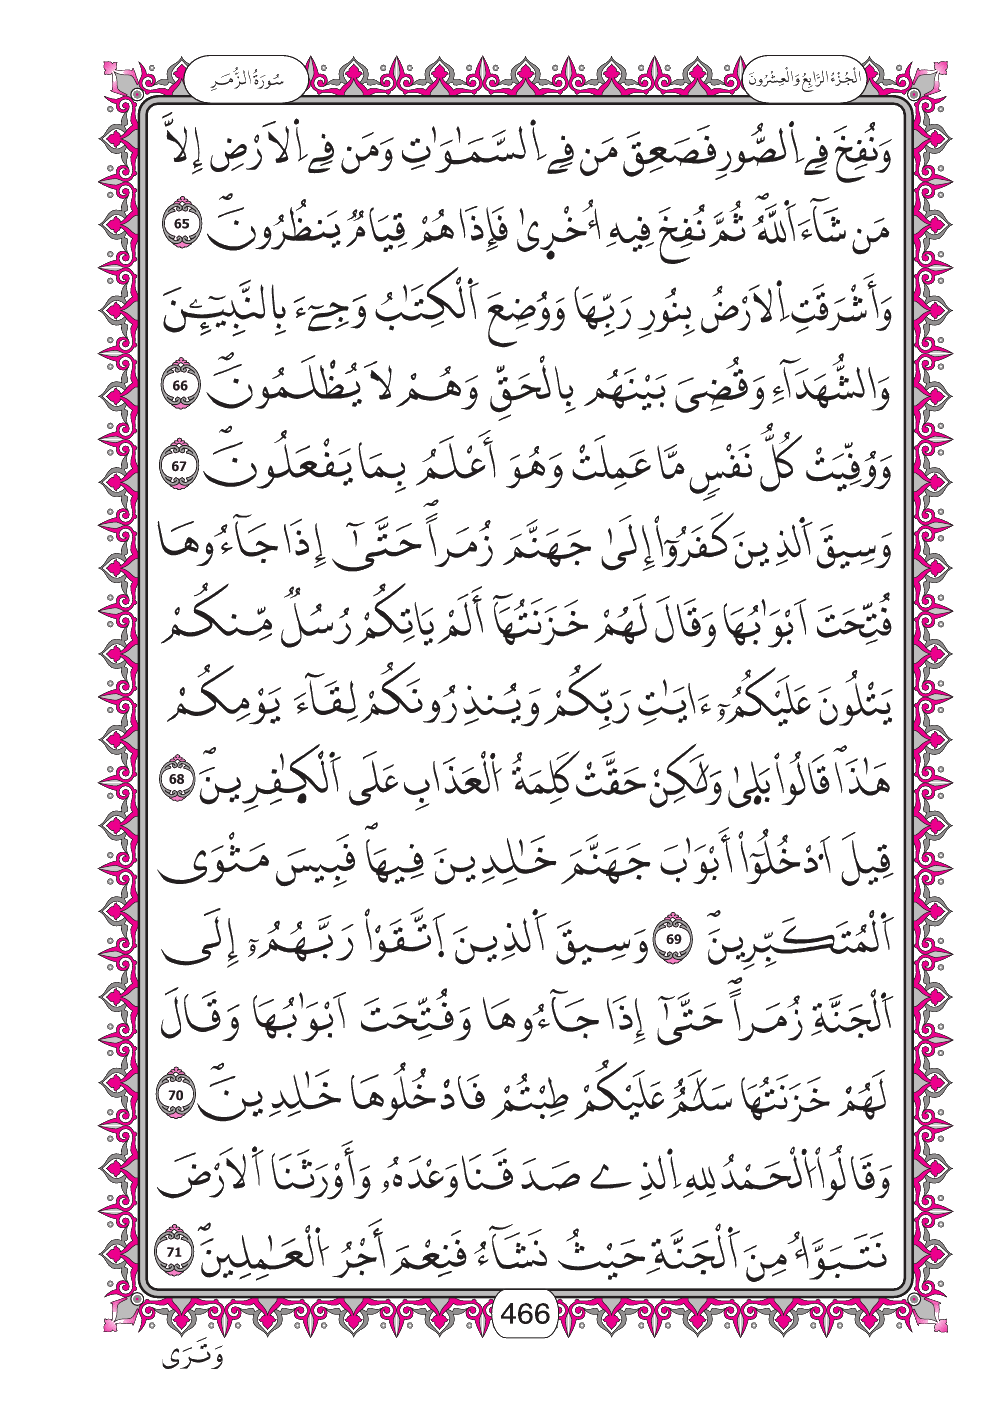 الْجُزْءُ الرَّابِعُ وَالْعِشْرُونَ
سُورَةُ الزُّمَرِ
وَنُفِخَ فِے اِ۬لصُّورِ فَصَعِقَ مَن فِے اِ۬لسَّمَٰوَٰتِ وَمَن فِے اِ۬لَارْضِ إِلَّا
مَن شَآءَ اَ۬للَّهُۖ ثُمَّ نُفِخَ فِيهِ أُخْر۪ىٰ فَإِذَا هُمْ قِيَامٞ يَنظُرُونَۖ 65
وَأَشْرَقَتِ اِ۬لَارْضُ بِنُورِ رَبِّهَا وَوُضِعَ اَ۬لْكِتَٰبُ وَجِےٓءَ بِالنَّبِيٓـِٕۧنَ
وَالشُّهَدَآءِ وَقُضِيَ بَيْنَهُم بِالْحَقِّ وَهُمْ لَا يُظْلَمُونَۖ 66
وَوُفِّيَتْ كُلُّ نَفْسٖ مَّا عَمِلَتْ وَهُوَ أَعْلَمُ بِمَا يَفْعَلُونَۖ 67
وَسِيقَ اَ۬لذِينَ كَفَرُوٓاْ إِلَىٰ جَهَنَّمَ زُمَراًۖ حَتَّىٰٓ إِذَا جَآءُوهَا
فُتِّحَتَ اَبْوَٰبُهَا وَقَالَ لَهُمْ خَزَنَتُهَآ أَلَمْ يَاتِكُمْ رُسُلٞ مِّنكُمْ
يَتْلُونَ عَلَيْكُمُۥٓ ءَايَٰتِ رَبِّكُمْ وَيُنذِرُونَكُمْ لِقَآءَ يَوْمِكُمْ
هَٰذَاۖ قَالُواْ بَل۪ىٰ وَلَٰكِنْ حَقَّتْ كَلِمَةُ اُ۬لْعَذَابِ عَلَى اَ۬لْكٰ۪فِرِينَۖ 68
قِيلَ اَ۟دْخُلُوٓاْ أَبْوَٰبَ جَهَنَّمَ خَٰلِدِينَ فِيهَاۖ فَبِيسَ مَثْوَى
اَ۬لْمُتَكَبِّرِينَۖ 69 وَسِيقَ اَ۬لذِينَ اَ۪تَّقَوْاْ رَبَّهُمُۥٓ إِلَى
اَ۬لْجَنَّةِ زُمَراًۖ حَتَّىٰٓ إِذَا جَآءُوهَا وَفُتِّحَتَ اَبْوَٰبُهَا وَقَالَ
لَهُمْ خَزَنَتُهَا سَلَٰمٌ عَلَيْكُمْ طِبْتُمْ فَادْخُلُوهَا خَٰلِدِينَۖ 70
وَقَالُواْ اُ۬لْحَمْدُ لِلهِ اِ۬لذِے صَدَقَنَا وَعْدَهُۥ وَأَوْرَثَنَا اَ۬لَارْضَ
نَتَبَوَّأُ مِنَ اَ۬لْجَنَّةِ حَيْثُ نَشَآءُ فَنِعْمَ أَجْرُ اُ۬لْعَٰمِلِينَۖ 71
466
وَتَرَى